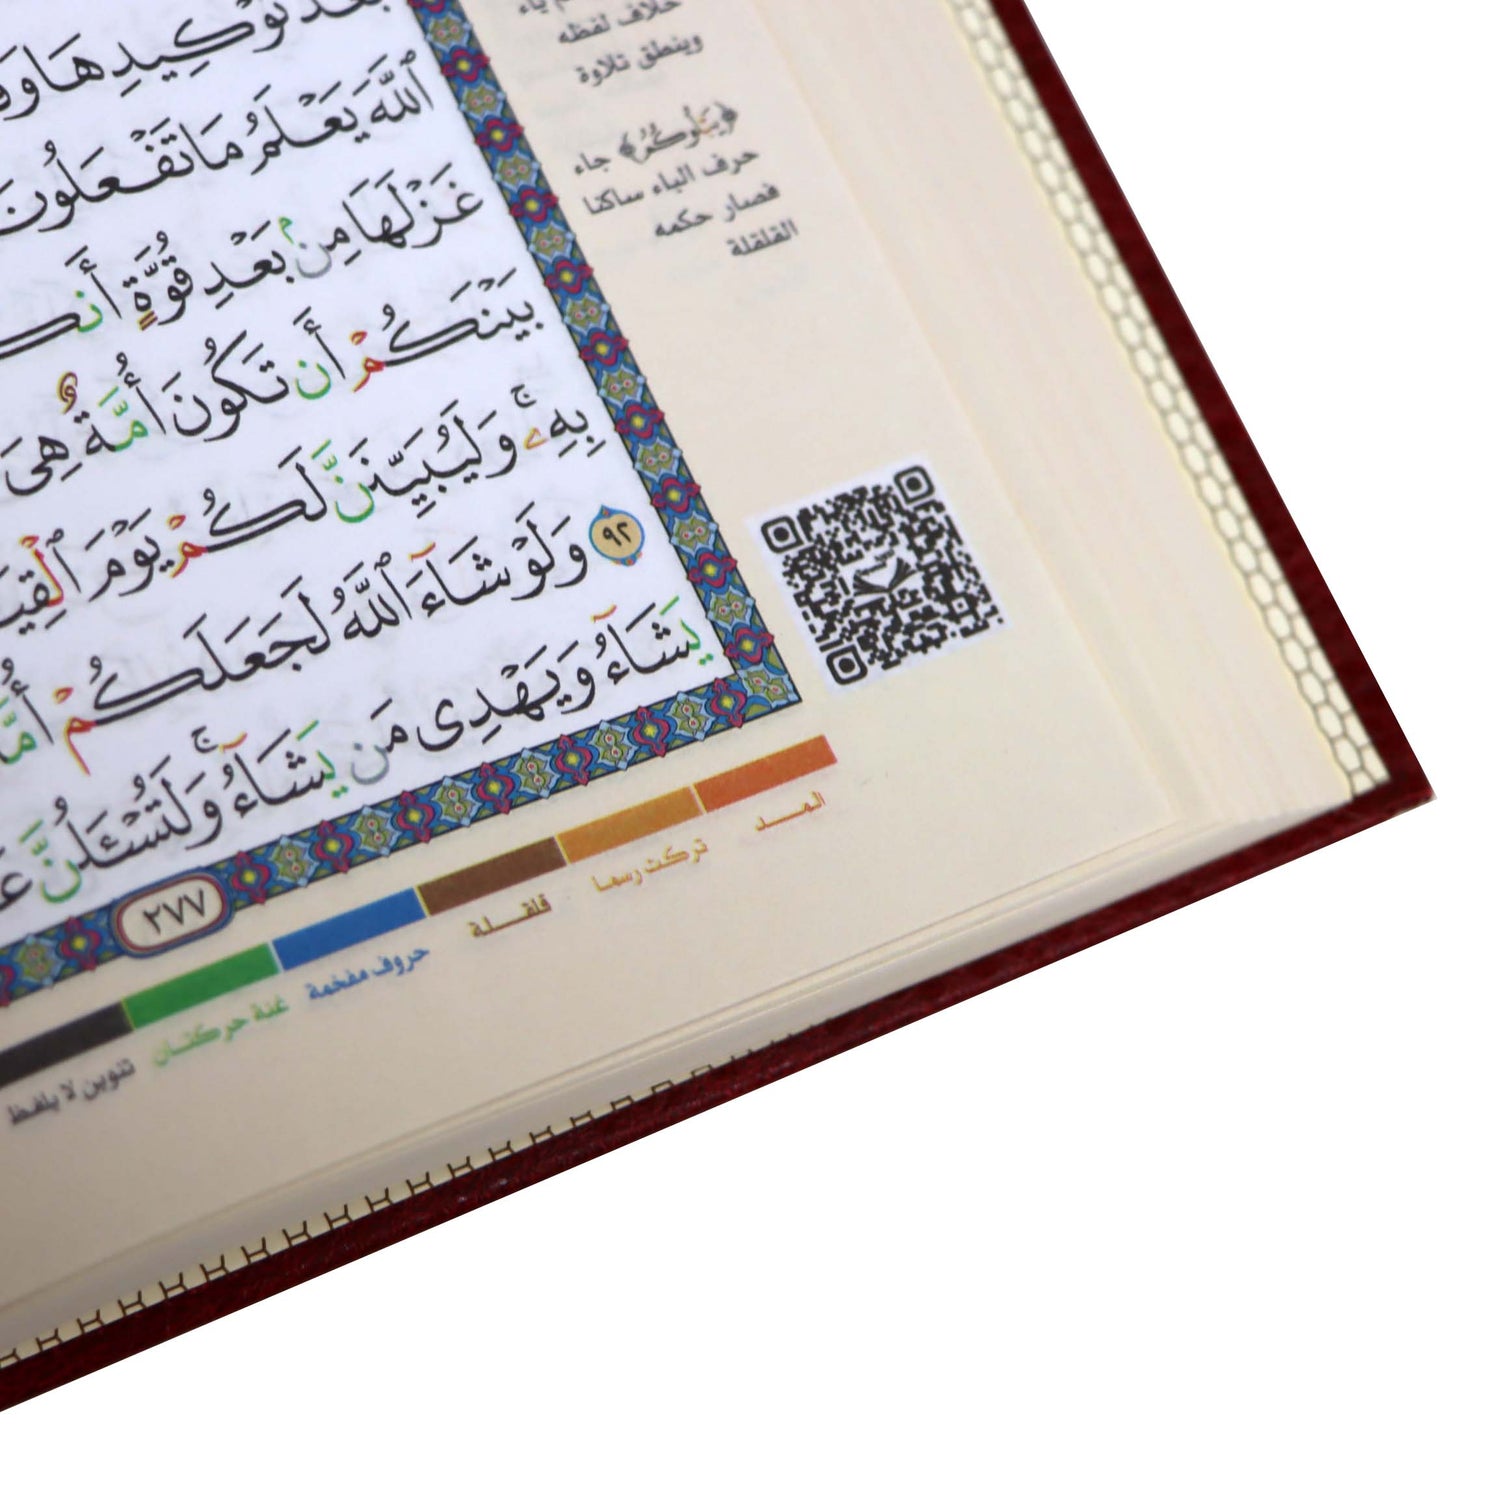 بَعْدَ تَوْكِيدِهَا
ٱللَّهَ يَعْلَمُ مَا تَفْعَلُونَ
غَزْلَهَا مِنۢ بَعْدِ قُوَّةٍ
بَيْنَكُمْ أَن تَكُونَ أُمَّةٌ هِىَ
بِهِۦۚ وَلَيُبَيِّنَنَّ لَكُمْ يَوْمَ
٩٢ وَلَوْ شَآءَ ٱللَّهُ لَجَعَلَكُمْ
يَشَآءُ وَيَهْدِى مَن يَشَآءُۚ وَلَتُسْـَٔلُنَّ
٢٧٧
خلاف لفظه
وينطق تلاوة
﴿يَبْلُوكُمُ﴾ جاء
حرف الباء ساكنا
فصار حكمه
القلقلة
المـد
تركت رسما
قلقـلة
حروف مفخمة
غنة حركتـان
تنوين لا يلفظ